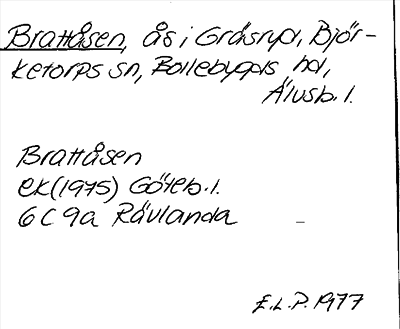 Brattåsen, ås i Gräsryd, Björ-
ketorps sn, Bollebygds hd,
Älvsb. l.
Brattåsen
ek (1975) Göteb. l.
6 C 9a Rävlanda
E.L.P. 1977